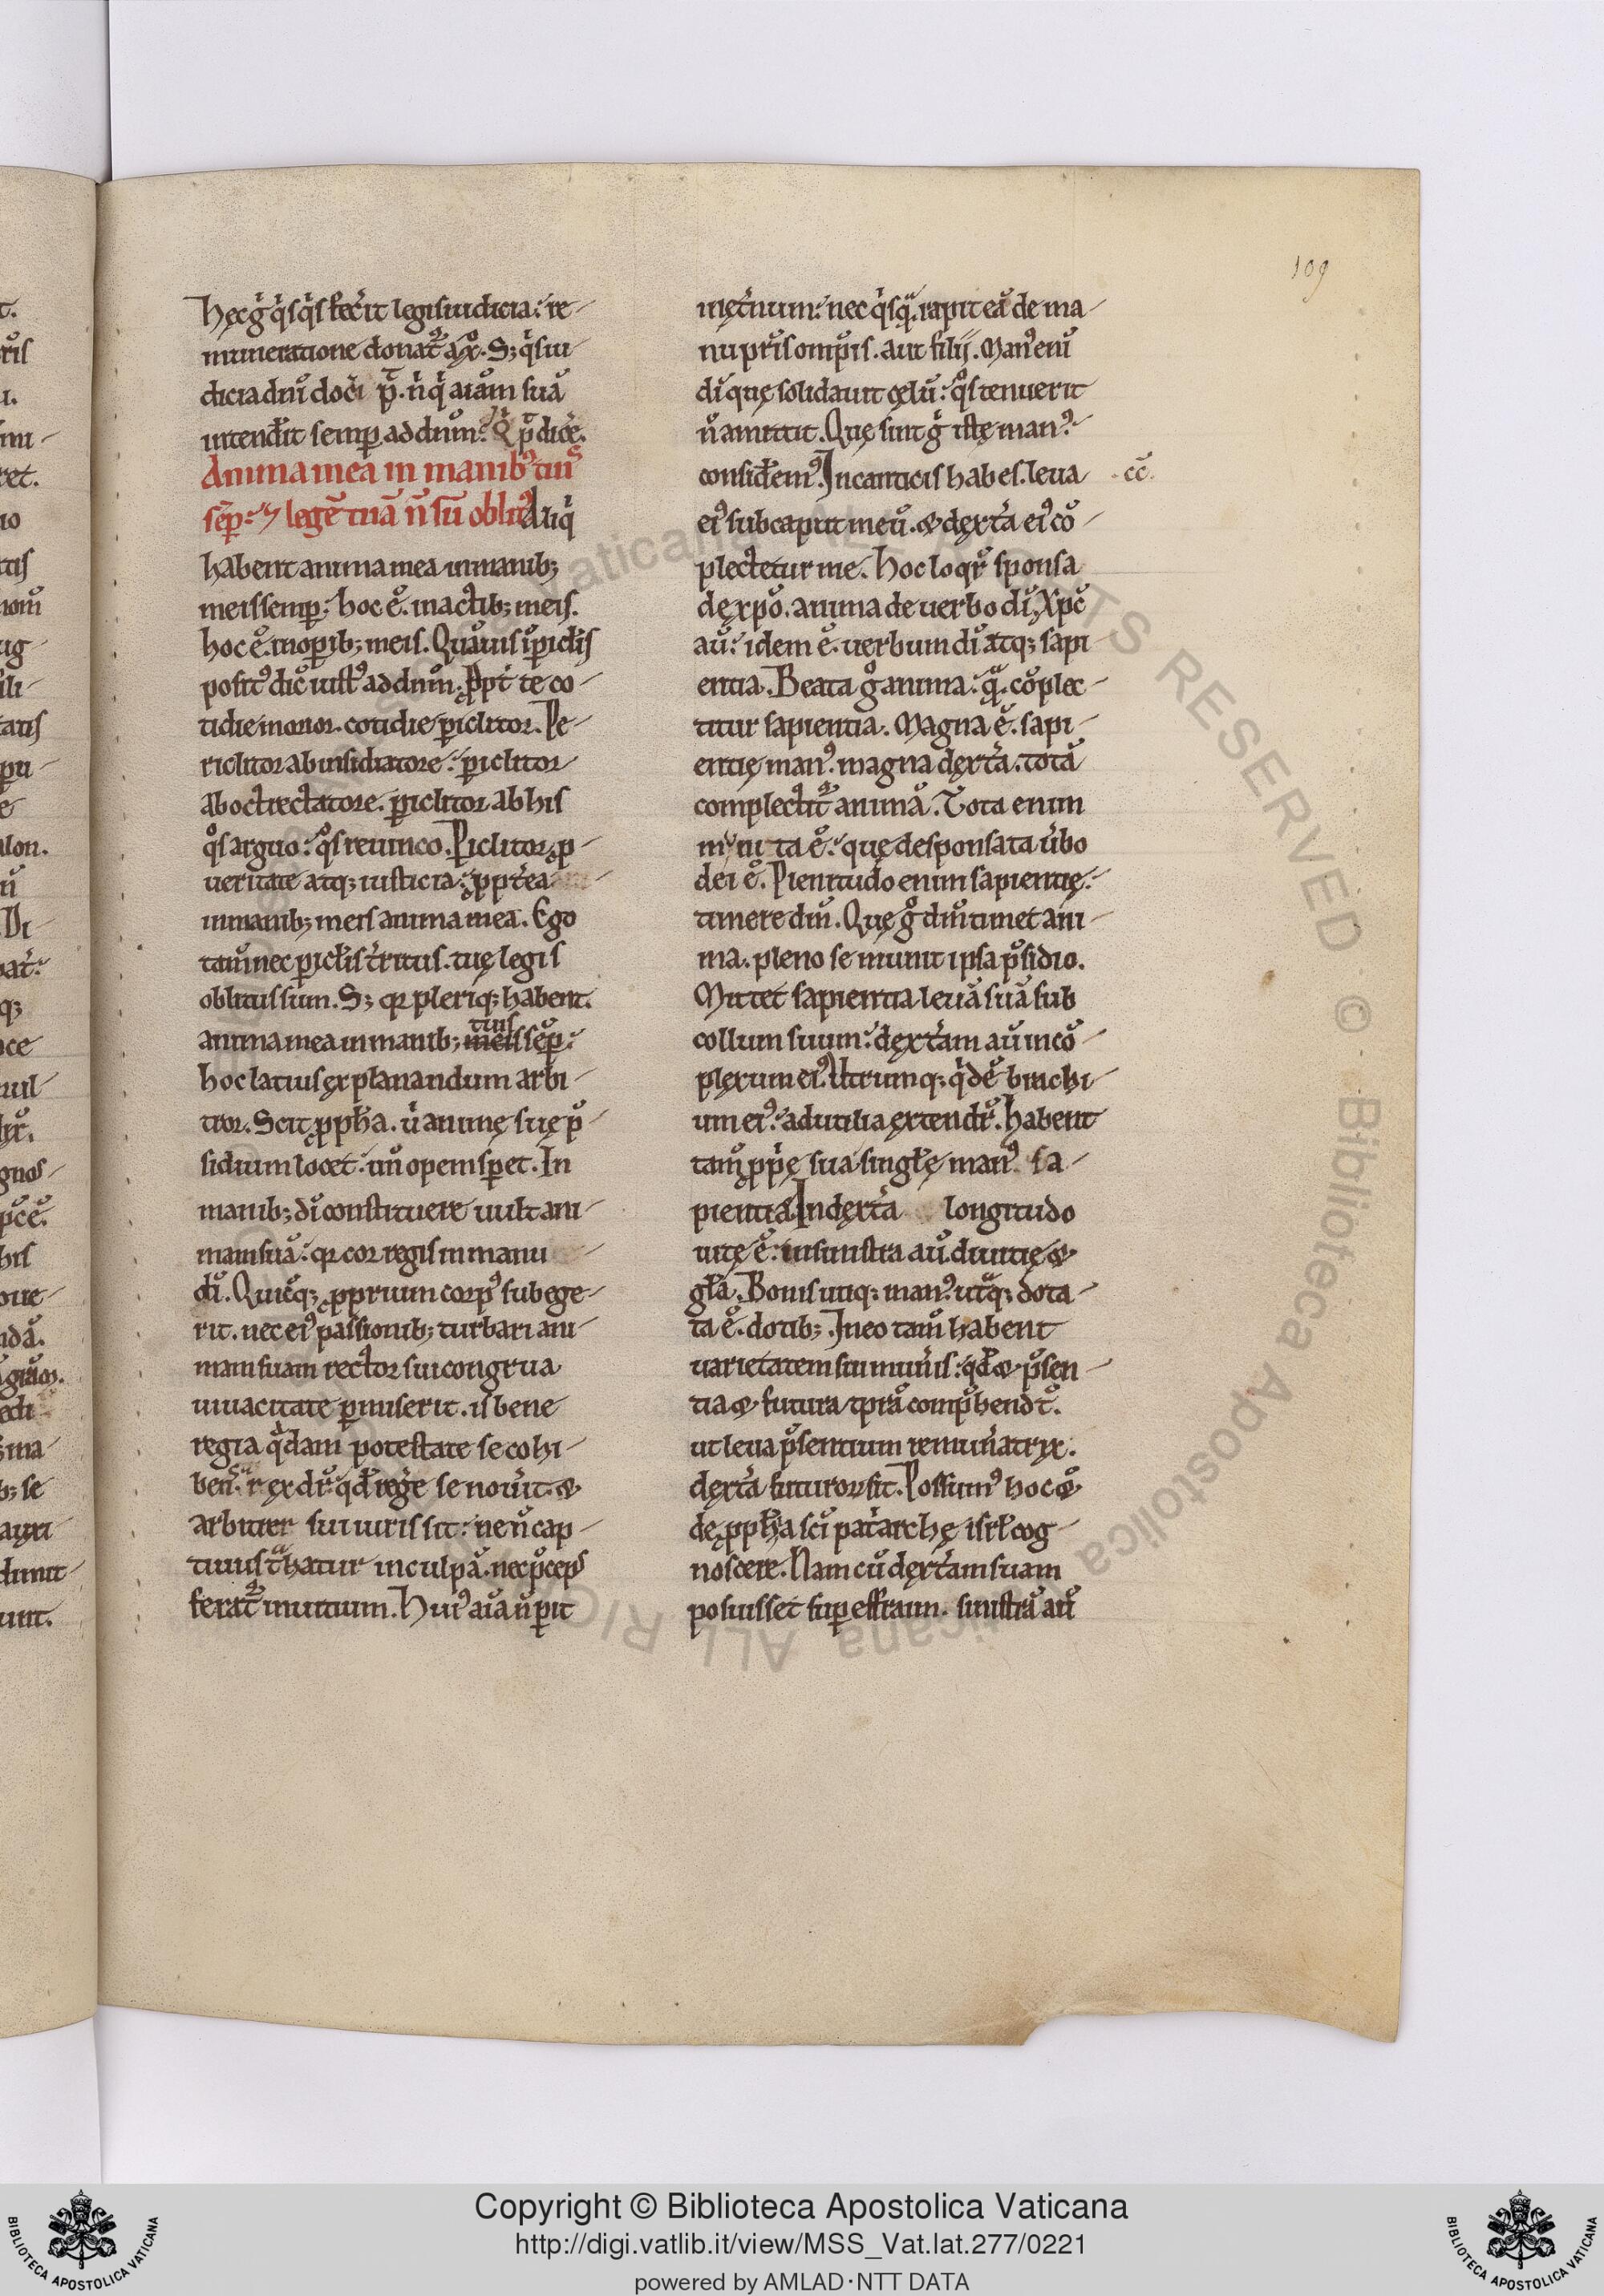 109
hęc g̾ q̾sq̾s fec̾it legis iudicia: re-
muneratione donat᷑ a xp̄o. S; q̾s iu-
dicia dn̄i doc̾i pt̄. n̄ q̾ aīam suā
intend̾it semp̱ ad dn̄m: Q̾ pt̄ dic̾e.
Anima mea in manib; tuis
sēp̱: ⁊ legē tuā n̄ sū oblit᷒ Aliq̾
habent anima mea in manib;
meis semp̱: hoc ē. in actib; meis.
hoc ē. in op̱ib; meis. Quāuis īp̱iclis
posit᷒ dic̄ iust᷒ ad dn̄m. ꝓpt̾ te co-
tidie morior. cotidie p̱iclitor. Pe-
riclitor ab insidiatore: p̱iclitor
ab octrectatore. p̱iclitor ab his
q̊s arguo: q̊s reuinco. P̱iclitor. ꝓ-
ueritate atq; iusticia: ꝓpt̾ea
in manib; meis anima mea. Ego
tam̄ nec p̱iclis t̾ritus. tuę legis
oblitus sum. S; qꝛ pleriq; habent.
anima mea in manib; meis tuis sēp̱:
hoc latius explanandum arbi-
tror. Scit ꝓpħa. u̾ animę suę p̄-
sidium locet: un̄ opem sp̱et. In
manib; dī constituere uult ani-
mam suā: qꝛ cor regis in manu
dī. Quicūq; ꝓprium corp᷒ subege-
rit. nec ei᷒ passionib; turbari ani-
mam suam rector sui congrua
uiuacitate p̱miserit. is bene
regia q̾dam potestate se cohi-
bens. rex dr̄: qd̄ reg̾e se nou̾it. &
arbiter sui iuris sit: ne n̄ cap-
tiuus t̾hatur in culpā. nec p̄ceps
ferat᷑ in uitium. Hui᷒ aīa n̄ p̱it
in ęt̾num: nec q̾sq̾. rapit eā de ma-
nu pr̄is omp̄is. aut filij. Man᷒ eni
dī quę solidauit cęlū: q̊s tenuerit
n̄ amittit. Quę sunt g̾ istę man᷒:
consid̾em᷒. In canticis habes. leua
cc̄.
ei᷒ sub caput meū. & dext̾a ei᷒ cō-
plectetur me. Hoc loqr̄ sponsa
de xp̄o. anima de uerbo dī. Xp̄c
aū: idem ē. uerbum dī atq; sapi
entia. Beata g̊ anima: q̾. cōplec-
titur sapientia. Magna ē. sapi-
entię man᷒. magna dext̾a. totā
complectit᷑ animā. Tota enim
munita ē: quę desponsata u̾bo
dei ē. Plenitudo enim sapientię:
timere dm̄. Quę g̊ dm̄ timet ani-
ma. pleno se munit ipsa p̄sidio.
Mittet sapientia leuā suā sub
collum suum: dext̾am aū in cō-
plexum ei᷒. Utrumq; q̾dē brachi-
um ei᷒: ad utilia extendr̄. Habent
tam̄ ꝓp̾ę sua singlę man᷒ sa-
pientia. In dext̾a longitudo
uitę ē: in sinistra aū. diuitię &
gła. Bonis utiq; man᷒. ut̾q; dota-
ta ē. dotib;. In eo tam̄ habent
uarietatem sui mun̾is: qd̄ & p̄sen-
tia & futura tp̄ra comp̄hendt̄.
ut leua p̄sentium remun̾atrix.
dext̾a futuroꝛ sit. Possum᷒ hoc &
de ꝓpħa sc̄i pat̾archę isrł cog-
noscere. Nam cū dext̾am suam
posuisset sup̱ effraim. sinistrā aū
Copyright © Biblioteca Apostolica Vaticana
http://digi.vatlib.it/view/MSS_Vat.lat.277/0221
powered by AMLAD·NTT DATA